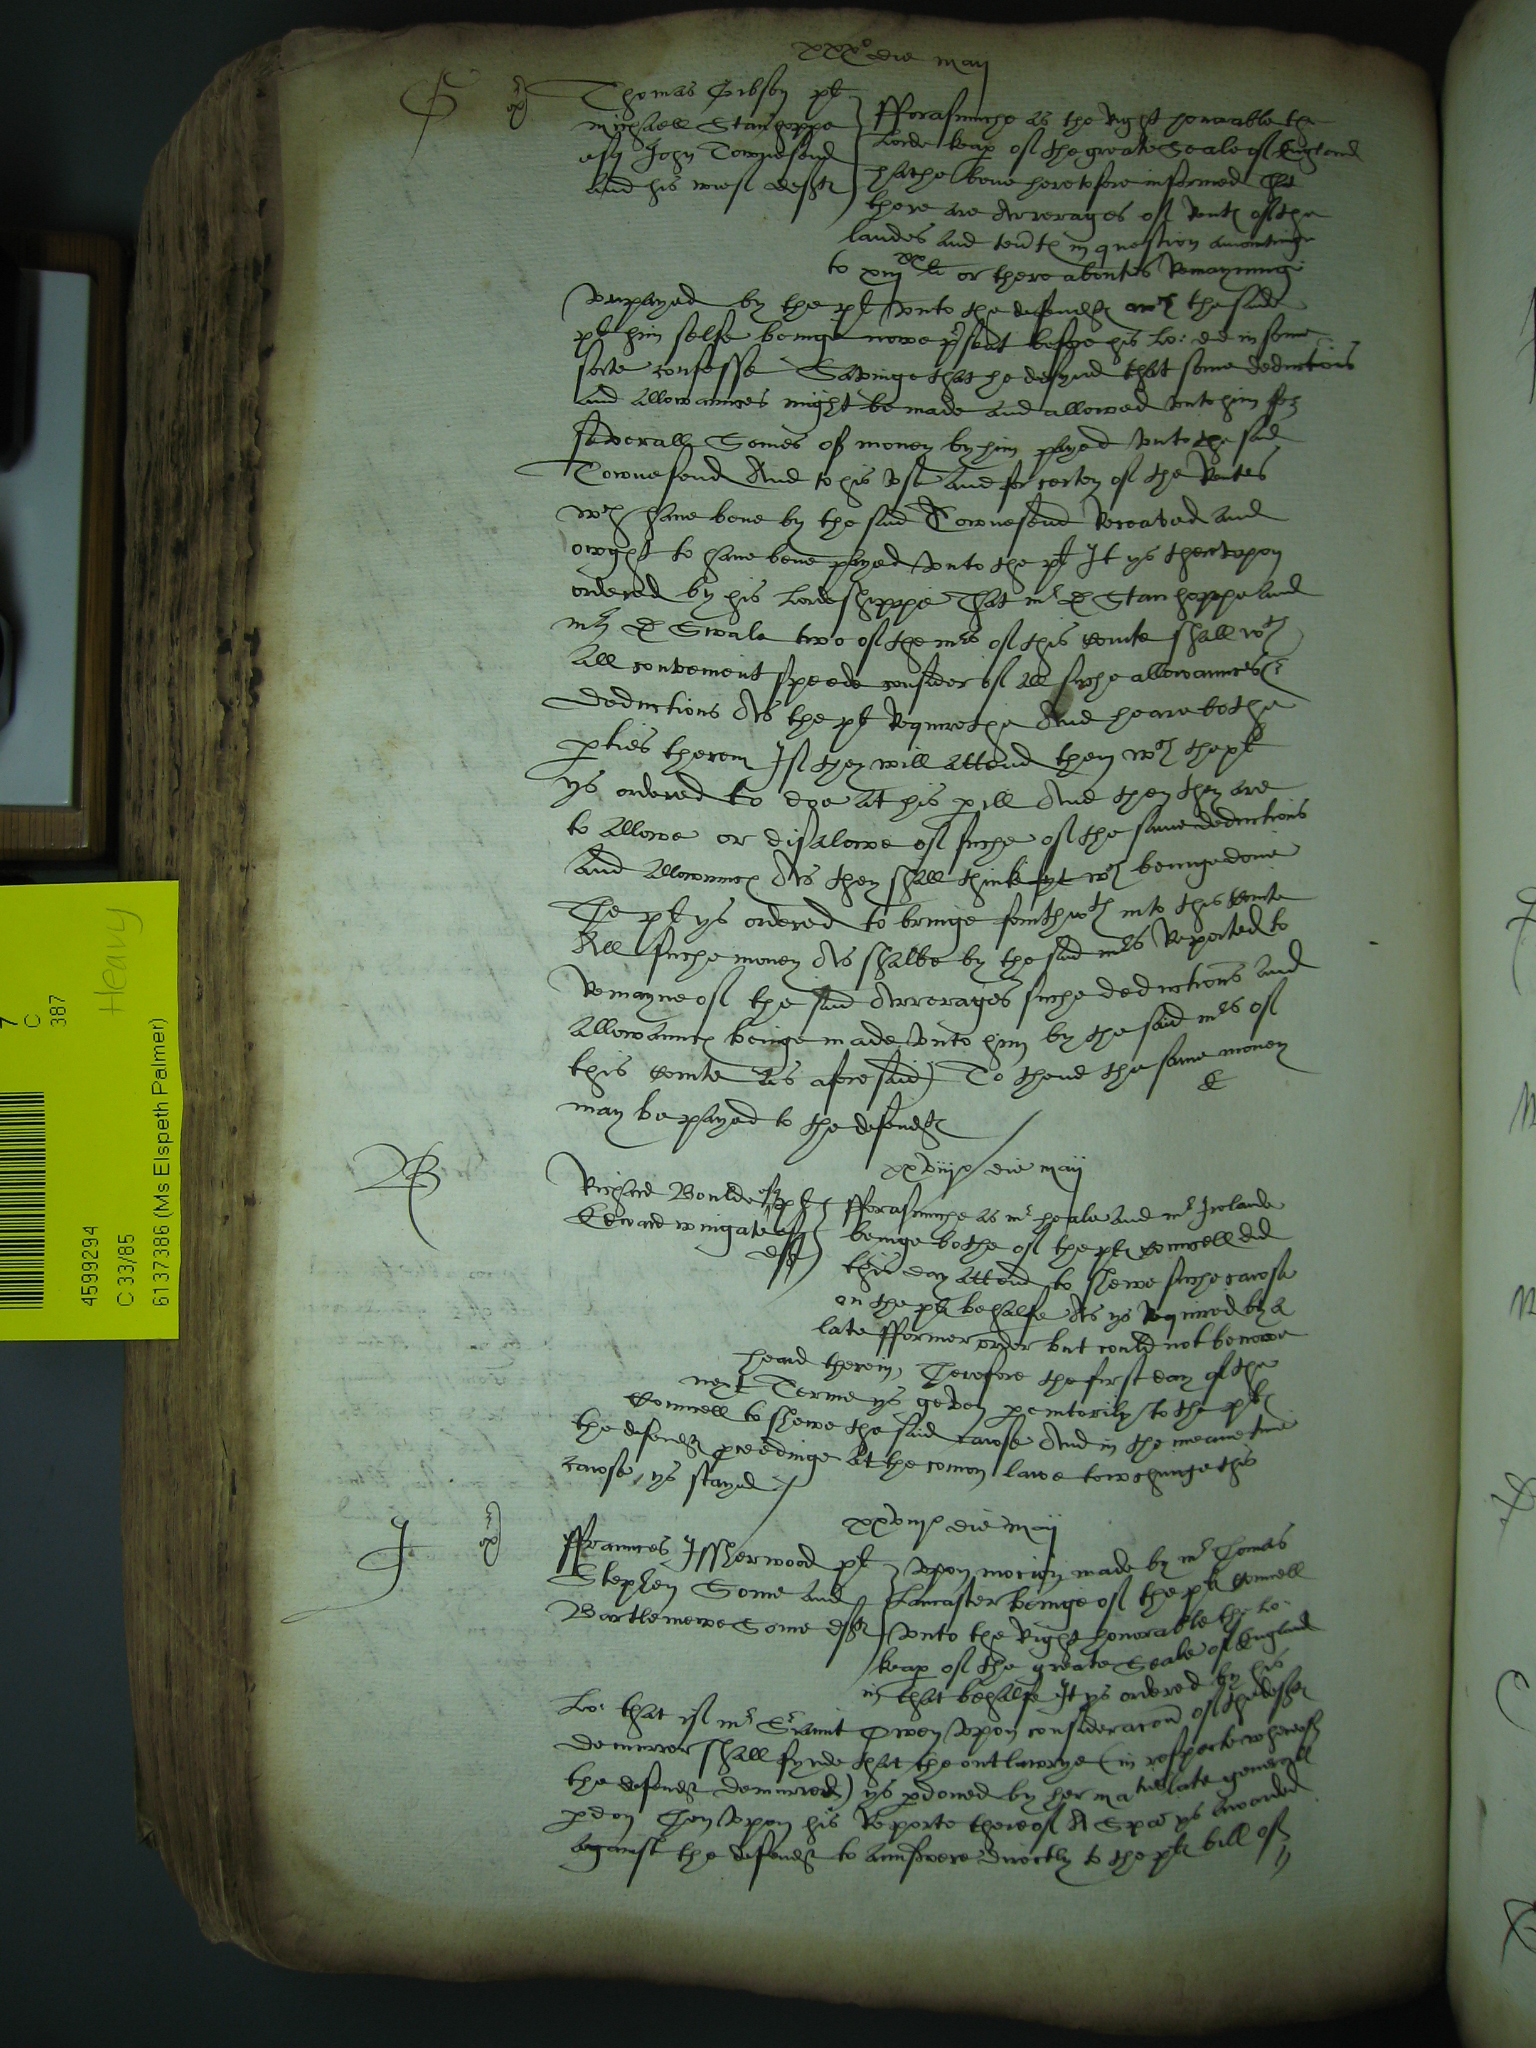 xxx° die maij
G
Thomas Gibson pt
michaell Stanhoppe
esq John Townesend
and his wief defts
fforasmuche as the Right honorable the
Lorde keap of the greate Seale of England
hathe bene heretofore informed that
there are Arrerages of Rent of the
landes and tentes in question amountinge
to xiij xx li or there aboutes Remayninge
vnpayed by the pt vnto the defendtes wch the said
pt him selfe beinge nowe psent before his Lo: did in some
sorte confesse Savinge that he desyred that some deductions
and allowaunces might be made and allowed vnto him for
severall Somes of money by him payed vnto the said
Townesend And to his vse and for certen of the Rentes
wch have bene by the said Townesend Receaved and
owght to have bene payed vnto the pt It ys therevpon
ordered by his Lordeshippe That mr D Stanhoppe and
mr D Swale two of the mrs of this Courte shall wth
all convenient speede consider of all suche allowaunces &
deductions As the pt Requirethe And heare bothe
pties therein If they will attend them wch the pt
ys ordered to doe at his pill And then they are
to allowe or disalowe of suche of the same deductions
and allowances As they shall think fyt wch beinge done
The pt ys ordered to bringe forthwth into this Courte
All suche money As shalbe by the said mrs Reported to
Remayne of the said Arrerages suche deductions and
allowaunces beinge made vnto him by the said mrs of
this Courte As aforesaid) To thend the same money
may be payed to the defendtes
B
xxviij° die maij
Richard Boulde esq pt
Edward wingate esq
deft
fforasmuche as mr heale and mr Irelande
beinge bothe of the pts Councell did
this day attend to shewe suche cawse
on the pts behalfe As ys Required by a
late fformer order but could not be nowe
heard therein, Therefore the first day of the
next Terme ys geven pemtorily to the pts
Councell to shewe the said cawse And in the meane time
the defendtes pceedinge at the comon lawe towchinge this
cawse, ys stayed
I
xxviij° die maij
ffraunces Issherwood pt
Stephen Some and
Bartlemewe Some defts
vpon mocion made by mr Thomas
Lancaster beinge of the pts Councell
vnto the Right honorable the Lo:
keap of the greate Seale of England
in that behalfe It ys ordered by his
Lo: that if mr Sriaunt Owen vpon consideracon of the defts
demurrer shall fynde that the outlawrye (in respecte whereof
the defendt demurred) ys pdoned by her maties late generall
pdon Then vpon his Reporte thereof A Spa ys awarded
against the defendt to aunswere directly to the pts bill of
7
C
387
Heavy
4599294
C 33/85
6137386 (Ms Elspeth Palmer)